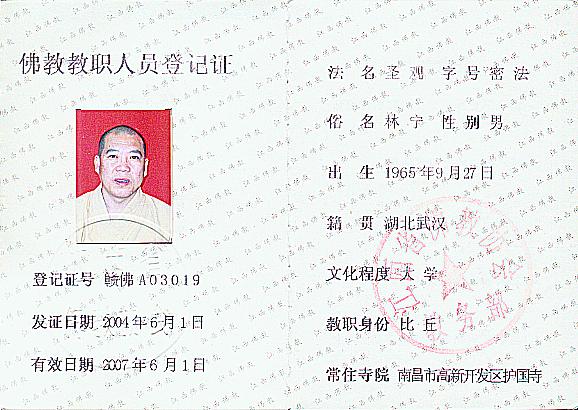 佛教教职人员登记证
登记证号 赣佛A03019
发证日期 2004年6月1日
有效日期 2007年6月1日
法 名 圣观 字号 密法
俗 名 林宁 性别 男
出 生 1965年9月27日
籍 贯 湖北武汉
文化程度 大 学
教职身份 比 丘
常住寺院 南昌市高新开发区护国寺
江西佛教